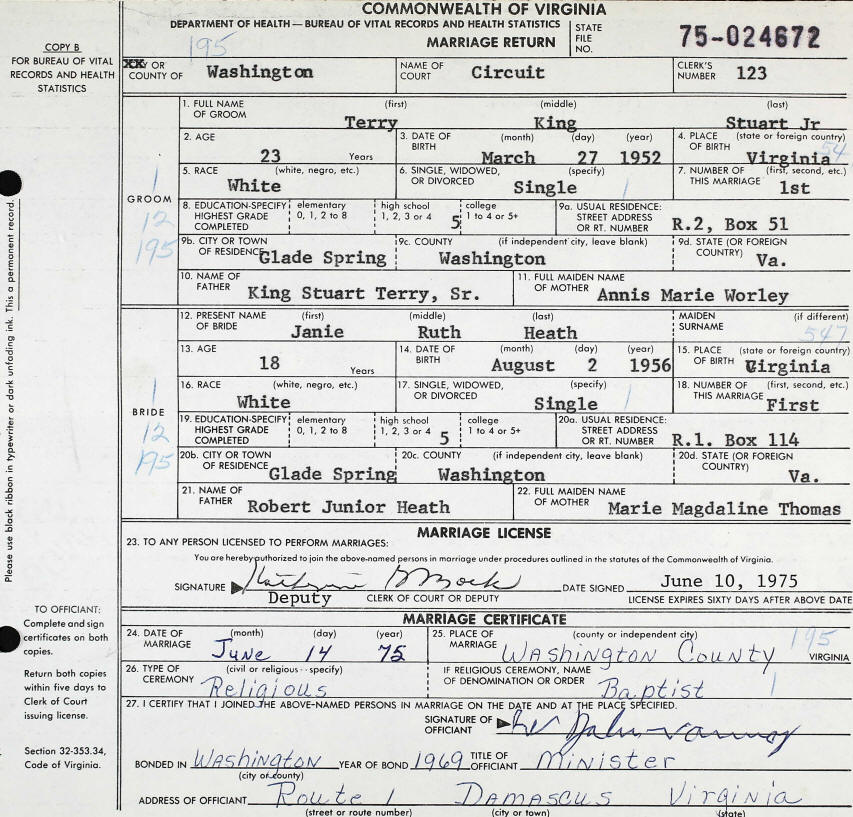 COMMONWEALTH OF VIRGINIA
DEPARTMENT OF HEALTH — BUREAU OF VITAL RECORDS AND HEALTH STATISTICS
MARRIAGE RETURN
STATE FILE NO. 75-024672
195
COPY B
FOR BUREAU OF VITAL
RECORDS AND HEALTH
STATISTICS
XXY OR COUNTY OF Washington NAME OF COURT Circuit CLERK'S NUMBER 123
GROOM
1
12
195
1. FULL NAME OF GROOM (first) Terry (middle) King (last) Stuart Jr
2. AGE 23 Years 3. DATE OF BIRTH (month) March (day) 27 (year) 1952 4. PLACE OF BIRTH (state or foreign country) Virginia 54
5. RACE (white, negro, etc.) White 6. SINGLE, WIDOWED, OR DIVORCED (specify) Single 1 7. NUMBER OF THIS MARRIAGE (first, second, etc.) 1st
8. EDUCATION-SPECIFY HIGHEST GRADE COMPLETED elementary 0, 1, 2 to 8 high school 1, 2, 3 or 4 5 college 1 to 4 or 5+ 9a. USUAL RESIDENCE: STREET ADDRESS OR RT. NUMBER R.2, Box 51
9b. CITY OR TOWN OF RESIDENCE Glade Spring 9c. COUNTY (if independent city, leave blank) Washington 9d. STATE (OR FOREIGN COUNTRY) Va.
10. NAME OF FATHER King Stuart Terry, Sr. 11. FULL MAIDEN NAME OF MOTHER Annis Marie Worley
BRIDE
1
12
195
12. PRESENT NAME OF BRIDE (first) Janie (middle) Ruth (last) Heath MAIDEN SURNAME (if different) 547
13. AGE 18 Years 14. DATE OF BIRTH (month) August (day) 2 (year) 1956 15. PLACE OF BIRTH (state or foreign country) Virginia
16. RACE (white, negro, etc.) White 17. SINGLE, WIDOWED, OR DIVORCED (specify) Single 1 18. NUMBER OF THIS MARRIAGE (first, second, etc.) First
19. EDUCATION-SPECIFY HIGHEST GRADE COMPLETED elementary 0, 1, 2 to 8 high school 1, 2, 3 or 4 5 college 1 to 4 or 5+ 20a. USUAL RESIDENCE: STREET ADDRESS OR RT. NUMBER R.1. Box 114
20b. CITY OR TOWN OF RESIDENCE Glade Spring 20c. COUNTY (if independent city, leave blank) Washington 20d. STATE (OR FOREIGN COUNTRY) Va.
21. NAME OF FATHER Robert Junior Heath 22. FULL MAIDEN NAME OF MOTHER Marie Magdaline Thomas
Please use black ribbon in typewriter or dark unfading ink. This a permanent record.
MARRIAGE LICENSE
23. TO ANY PERSON LICENSED TO PERFORM MARRIAGES:
You are hereby authorized to join the above-named persons in marriage under procedures outlined in the statutes of the Commonwealth of Virginia.
SIGNATURE DATE SIGNED June 10, 1975
Deputy CLERK OF COURT OR DEPUTY LICENSE EXPIRES SIXTY DAYS AFTER ABOVE DATE
TO OFFICIANT:
Complete and sign
certificates on both
copies.
Return both copies
within five days to
Clerk of Court
issuing license.
Section 32-353.34,
Code of Virginia.
MARRIAGE CERTIFICATE
24. DATE OF MARRIAGE (month) June (day) 14 (year) 75 25. PLACE OF MARRIAGE (county or independent city) Washington County 195 VIRGINIA
26. TYPE OF CEREMONY (civil or religious - specify) Religious IF RELIGIOUS CEREMONY, NAME OF DENOMINATION OR ORDER Baptist 1
27. I CERTIFY THAT I JOINED THE ABOVE-NAMED PERSONS IN MARRIAGE ON THE DATE AND AT THE PLACE SPECIFIED.
SIGNATURE OF OFFICIANT Rev
BONDED IN Washington (city or county) YEAR OF BOND 1969 TITLE OF OFFICIANT Minister
ADDRESS OF OFFICIANT Route 1 Damascus Virginia
(street or route number) (city or town) (state)